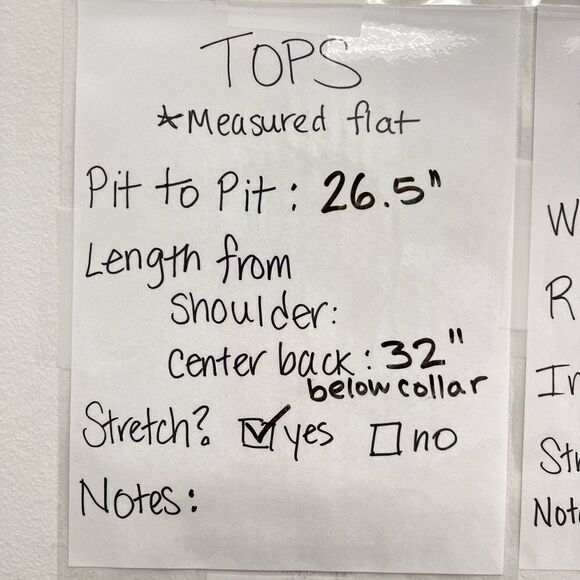 TOPS
*Measured flat
Pit to Pit: 26.5"
Length from
shoulder:
center back: 32"
below collar
Stretch? ☑ yes ☐ no
Notes:
W
R
In
Str
Note